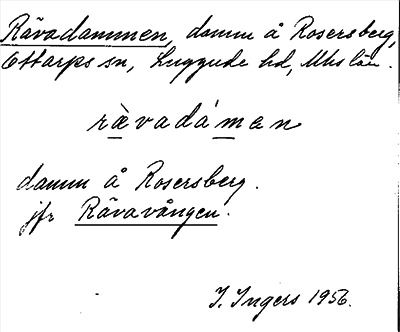 Rävadammen, damm å Rosersberg,
Ottarps sn, Luggude hd, Mhs län.
rävadámen
damm å Rosersberg.
jfr Rävavången.
I. Ingers 1956.